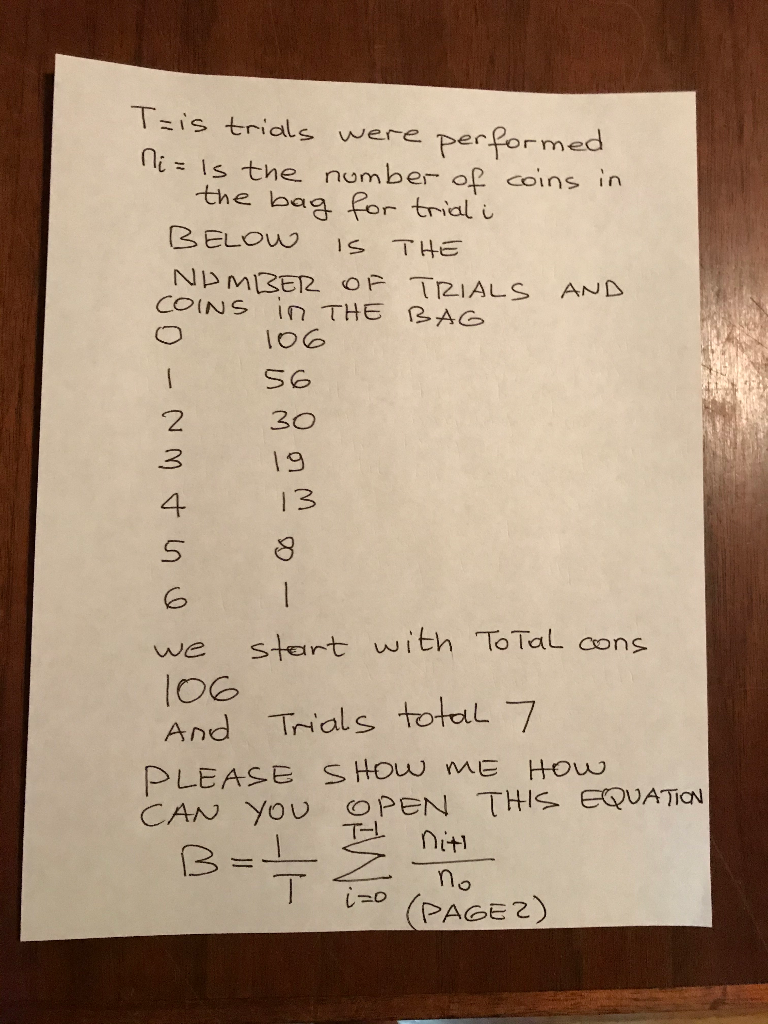 T=is trials were performed
ni = Is the number of coins in
the bag for trial i
BELOW IS THE
NUMBER OF TRIALS AND
COINS in THE BAG
0 106
1 56
2 30
3 19
4 13
5 8
6 1
we start with ToTaL cons
106
And Trials total 7
PLEASE SHOW ME HOW
CAN YOU OPEN THIS EQUATION
B = 1/T Σ_{i=0}^{T-1} n_{i+1}/n_0
(PAGE 2)